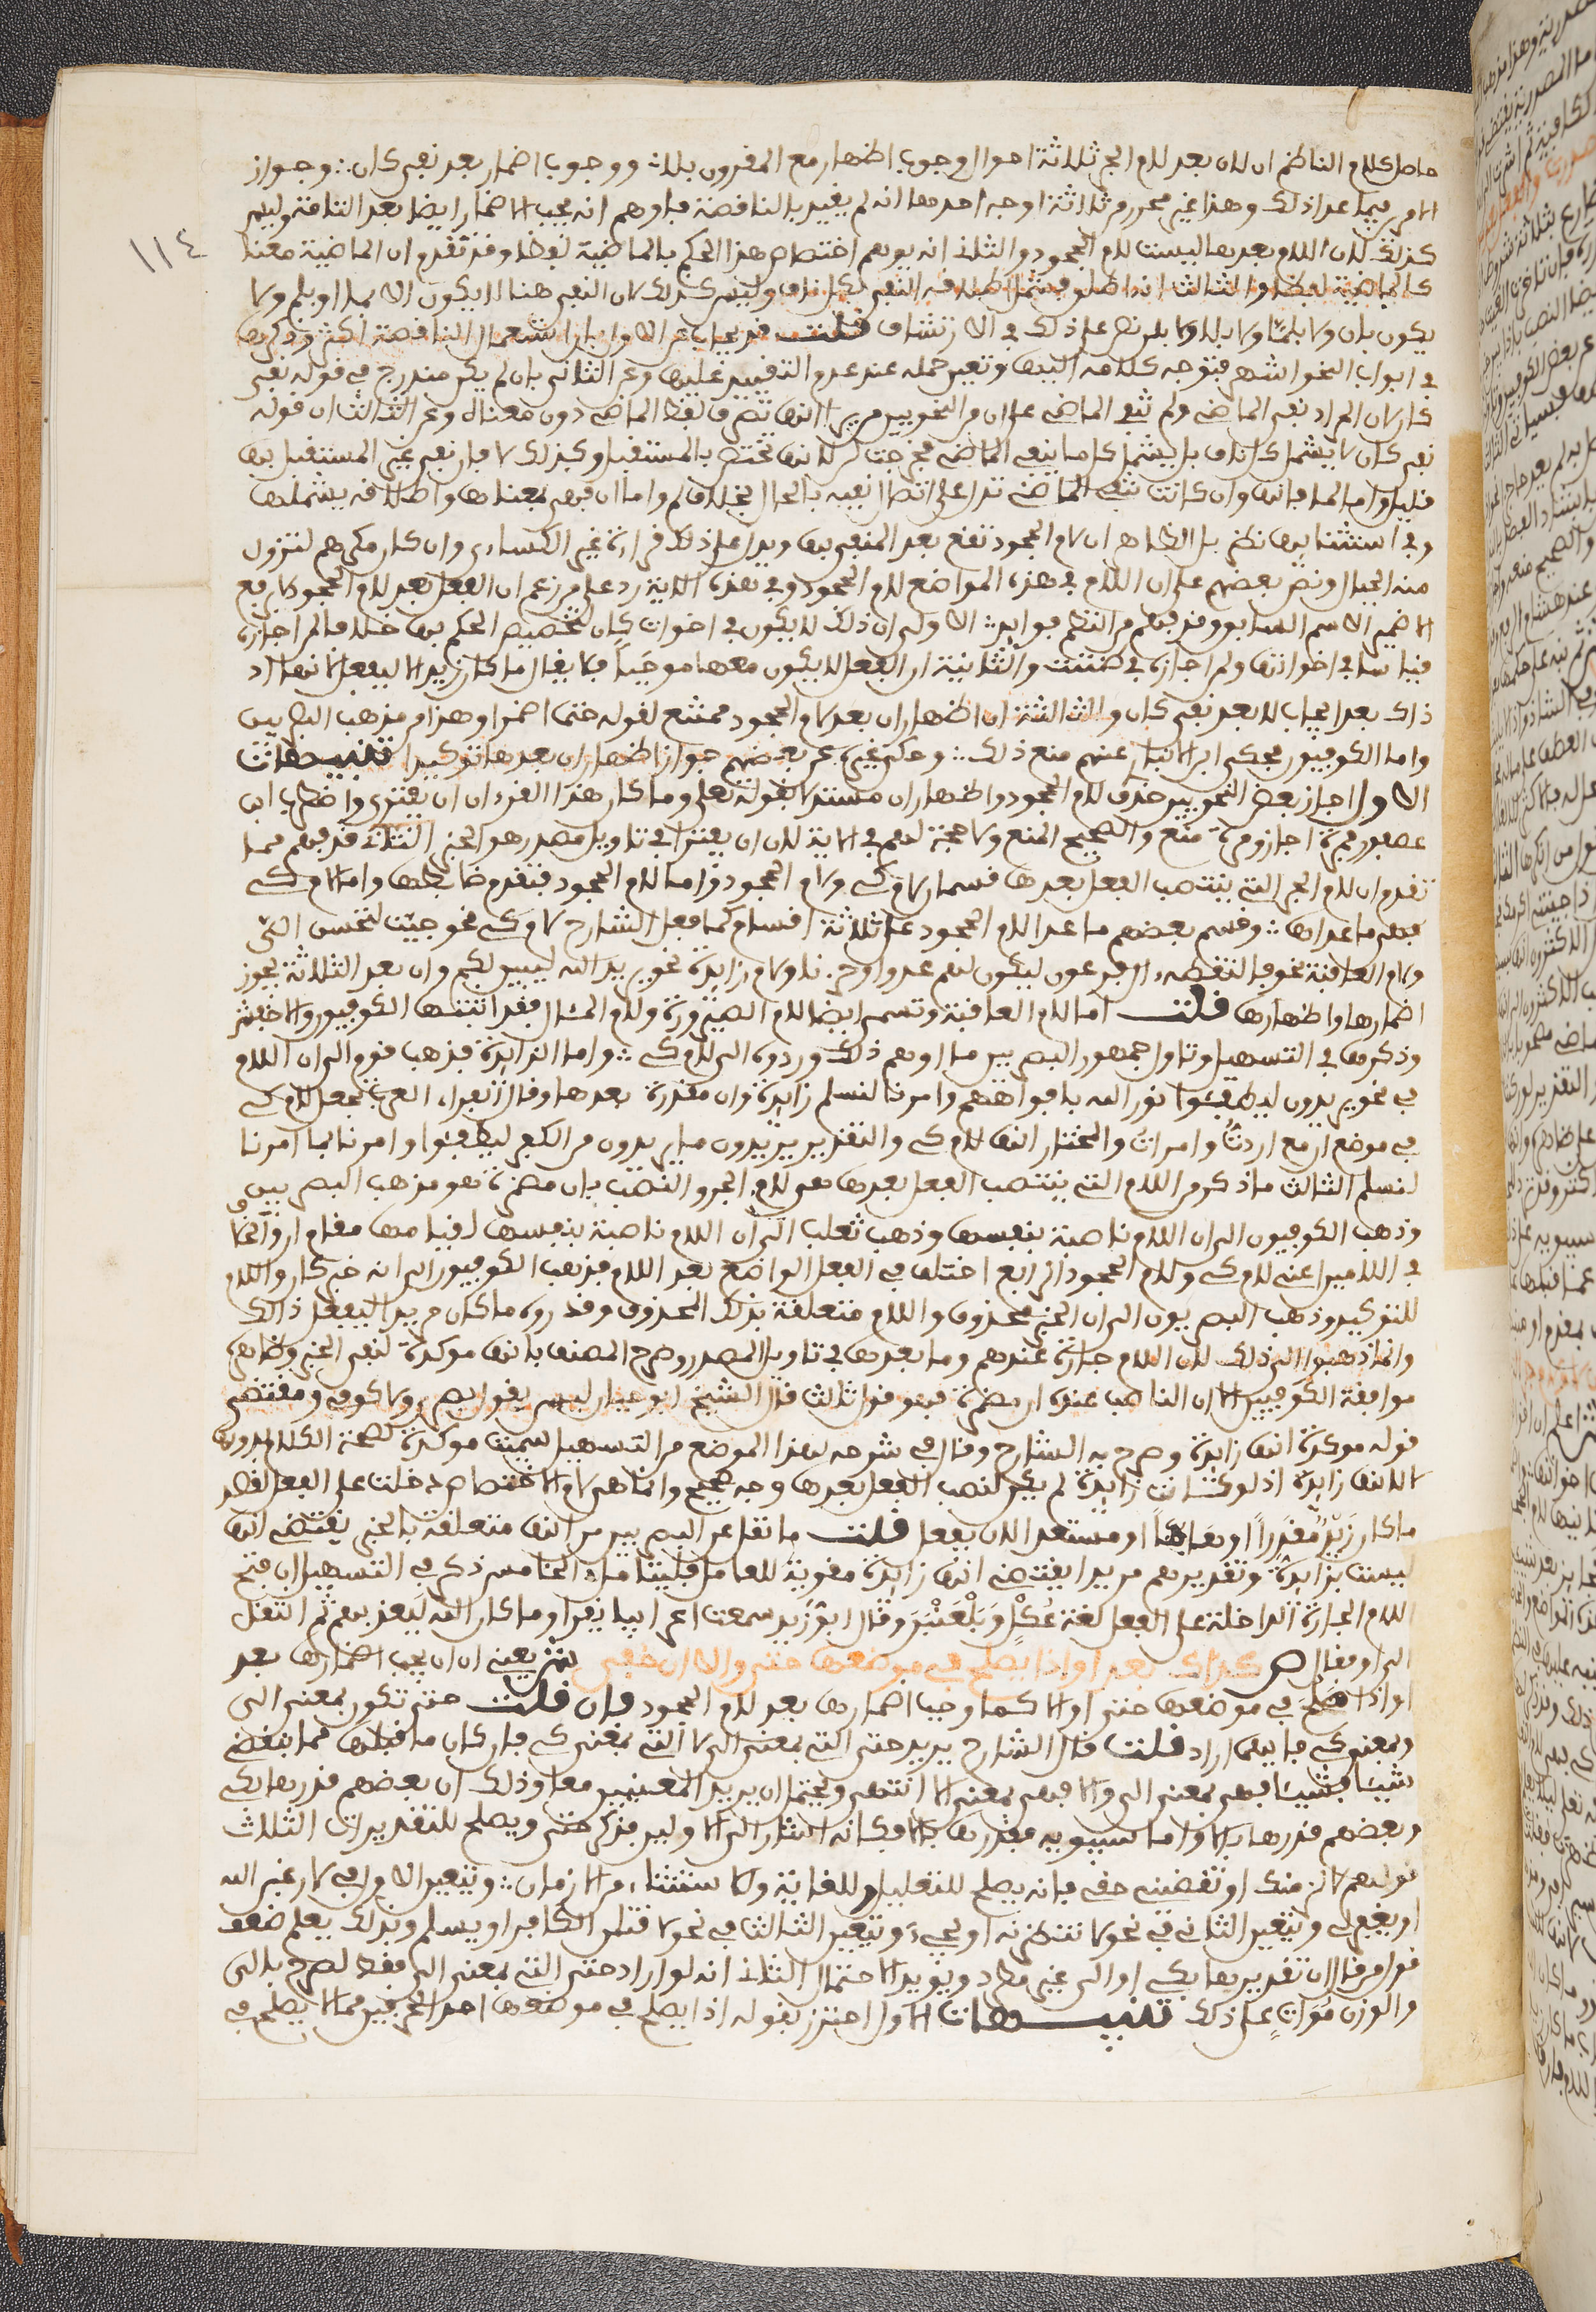 حاصل كلام الناظم ان لان بعد لام الجر ثلاثة احوال وجوب اظهار مع المقرون بلا ووجوب اضمار بعد نفي كان وجواز
الامرين فيما عدا ذلك وهذا غير محرر من ثلاثة اوجه احدها انه لم يقيد بالناقصة فاوهم انه يجب الاضمار ايضا بعد التامة وليس
١١٤
كذلك لان اللام بعدها ليست لام الجحود والثاني انه يوهم اختصاص هذا الحكم بالماضية لفظا وقد تقدم ان الماضية معنا
كالماضية لفظا والثالث انه اطلق فشمل اطلاقه النفي بكل ناف وليس كذلك لان النفي هنا لا يكون الا بما او بلم ولا
يكون بان ولا بلما ولا بلا ولا بلن نص على ذلك في الارتشاف قلت قد يجاب عن الاول بان استعمال الناقصة اكثر وذكرها
في ابواب النحو اشهر فتوجه كلامه اليها وتعين حمله عند عدم التقييد عليها وعن الثاني بان لم يكن مندرج في قوله نفي
كان لان المراد نفي الماضي ولم تنفي الماضي على ان من النحويين من يرى انها تصرف لفظ الماضي دون معناه وعن الثالث ان قوله
نفي كان لا يشمل كل ناف بل يشمل كل ما ينفي الماضي فخرجت لن لانها تختص بالمستقبل وكذلك لا فان نفي غير المستقبل بها
قليل واما لما فانها وان كانت تنفي الماضي تدل على اتصال نفيه بالحال بخلاف لم واما ان فهي بمعناها واطلاقه يشملها
وفي استثنايها نظر بل الظاهر ان لام الجحود تقع بعد المنفي بها ويدل على ذلك قراءة غير الكسائي وان كان مكرهم لتزول
منه الجبال ونص بعضهم على ان اللام في هذه المواضع لام الجحود وفي هذه الاية رد على من زعم ان الفعل بعد لام الجحود لا يرفع
الا ضمير الاسم السابق وقد فهم من النظم فوايد الاولى ان ذلك لا يكون في اخوات كان لتخصيص الحكم بها خلافا لمن اجازه
قياسا في اخواتها ولمن اجازه في ظننت والثانية ان الفعل لا يكون معها موجبا فلا يقال ما كان زيد الا ليفعل لانها اذ
ذاك بعد ايجاب لا بعد نفي كان والثالثة ان اظهار ان بعد لام الجحود ممتنع لقوله حتما اضمرا وهذا من مذهب البصريين
واما الكوفيون فحكى ابن الانباري عنهم منع ذلك وحكى غيره عن بعضهم جواز اظهار ان بعدها توكيدا تنبيهات
الاول اجاز بعض النحويين حذف لام الجحود واظهار ان مستدلا بقوله تعلى وما كان هذا القرءان ان يفترى واضطرب ابن
عصفور فمرة اجاز ومرة منع والصحيح المنع ولا حجة لهم في الاية لان ان يفترى في تاويل مصدر هو الخبر الثاني قد فهم مما
تقدم ان لام الجر التي ينتصب الفعل بعدها قسمان لام كي ولام الجحود واما لام الجحود فتقدم ضابطها واما لام كي
فهي ما عداها وقسم بعضهم ما عدا لام الجحود على ثلاثة اقسام كما فعل الشارح لام كي نحو جيت لتحسن الي
ولام العاقبة نحو فالتقطه ال فرعون ليكون لهم عدوا وحزنا ولام زايدة نحو يريد الله ليبين لكم وان بعد الثلاثة يجوز
اضمارها واظهارها قلت اما لام العاقبة وتسمى ايضا لام الصيرورة ولام المئال فقد اثبتها الكوفيون والاخفش
وذكرها في التسهيل وتاول جمهور البصريين ما اوهم ذلك وردوه الى لام كي واما الزايدة فذهب قوم الى ان اللام
في نحو يريدون ليطفئوا نور الله بافواههم وامرنا لنسلم زايدة وان مقدرة بعدها وقال الفراء العرب تجعل لام كي
في موضع ان مع اردت وامرت والمختار انها لام كي والتقدير يريدون ما يريدون من الكفر ليطفئوا وامرنا بما امرنا
لنسلم الثالث ما ذكر من اللام التي ينتصب الفعل بعدها هو لام الجر والنصب بان مضمرة هو مذهب البصريين
وذهب الكوفيون الى ان اللام ناصبة بنفسها وذهب ثعلب الى ان اللام ناصبة بنفسها لقيامها مقام ان والخلاف
في اللامين اعني لام كي ولام الجحود الرابع اختلف في الفعل الواقع بعد اللام فذهب الكوفيون الى انه خبر كان واللام
للتوكيد وذهب البصريون الى ان الخبر محذوف واللام متعلقة بذلك المحذوف وقدروه ما كان مريدا ليفعل ذلك
وانما ذهبوا الى ذلك لان اللام جارة عندهم وما بعدها في تاويل المصدر وصرح المصنف بانها موكدة لنفي الخبر وظاهره
موافقة الكوفيين الا ان الناصب عنده ان مضمرة فهو قول ثالث قال الشيخ ابو حيان ليس بقول بصري ولا كوفي ومقتضى
قوله موكدة انها زايدة وصرح به الشارح وقال في شرحه لهذا الموضع من التسهيل سميت موكدة لصحة الكلام بدونها
لا لانها زايدة اذ لو كانت زايدة لم يكن لنصب الفعل بعدها وجه صحيح وانما هي لام الاختصاص دخلت على الفعل لقصد
ما كان زيد مقدرا او هاما او مستعدا لان يفعل قلت ما نقل عن البصريين من انها متعلقة بالخبر يقتضي انها
ليست بزايدة وتقديرهم مريدا يقتضي انها زايدة مقوية للعامل فليتامل الخامس ذكر في التسهيل ان فتح
اللام الجارة الداخلة على الفعل لغة عكل وبلعنبر وقال ابو زيد سمعت اعرابيا يقرا وما كان الله ليعذبهم ثم انتقل
الى او فقال ص كذاك بعد او اذا يصلح في موضعها حتى او الا ان خفي ش يعني ان ان يجب اضمارها بعد
او اذا صلح في موضعها حتى او الا كما وجب اضمارها بعد لام الجحود فان قلت حتى تكون بمعنى الى
وبمعنى كي فايهما اراد قلت قال الشارح يريد حتى التي بمعنى الى لا التي بمعنى كي فان كان ما قبلها مما ينقضي
شيئا فشيئا فهي بمعنى الى والا فهي بمعنى الا انتهى ويحتمل ان يريد المعنيين معا وذلك ان بعضهم قدرها بكي
وبعضهم قدرها بالى واما سيبويه فقدرها بالا فكانه اشار الى الاولين بذكر حتى ويصلح للتقديرات الثلاث
قولهم لالزمنك او تقضيني حقي فانه يصلح للتعليل وللغاية ولاستثناء من الازمان وتتعين الاول في لاطيعن الله
او يغفر لي وتتعين الثاني في نحو لانتظرنه او يجيء وتتعين الثالث في نحو لاقتلن الكافر او يسلم وبذلك يعلم ضعف
قول من قال ان تقديرها بكي او الى غير مطرد ويؤيد الاحتمال الثاني انه لو اراد حتى التي بمعنى الى فقط لصرح بالى
والوزن موات على ذلك تنبيهات الاول احترز بقوله اذا يصلح في موضعها احد الحرفين مما لا يصلح في